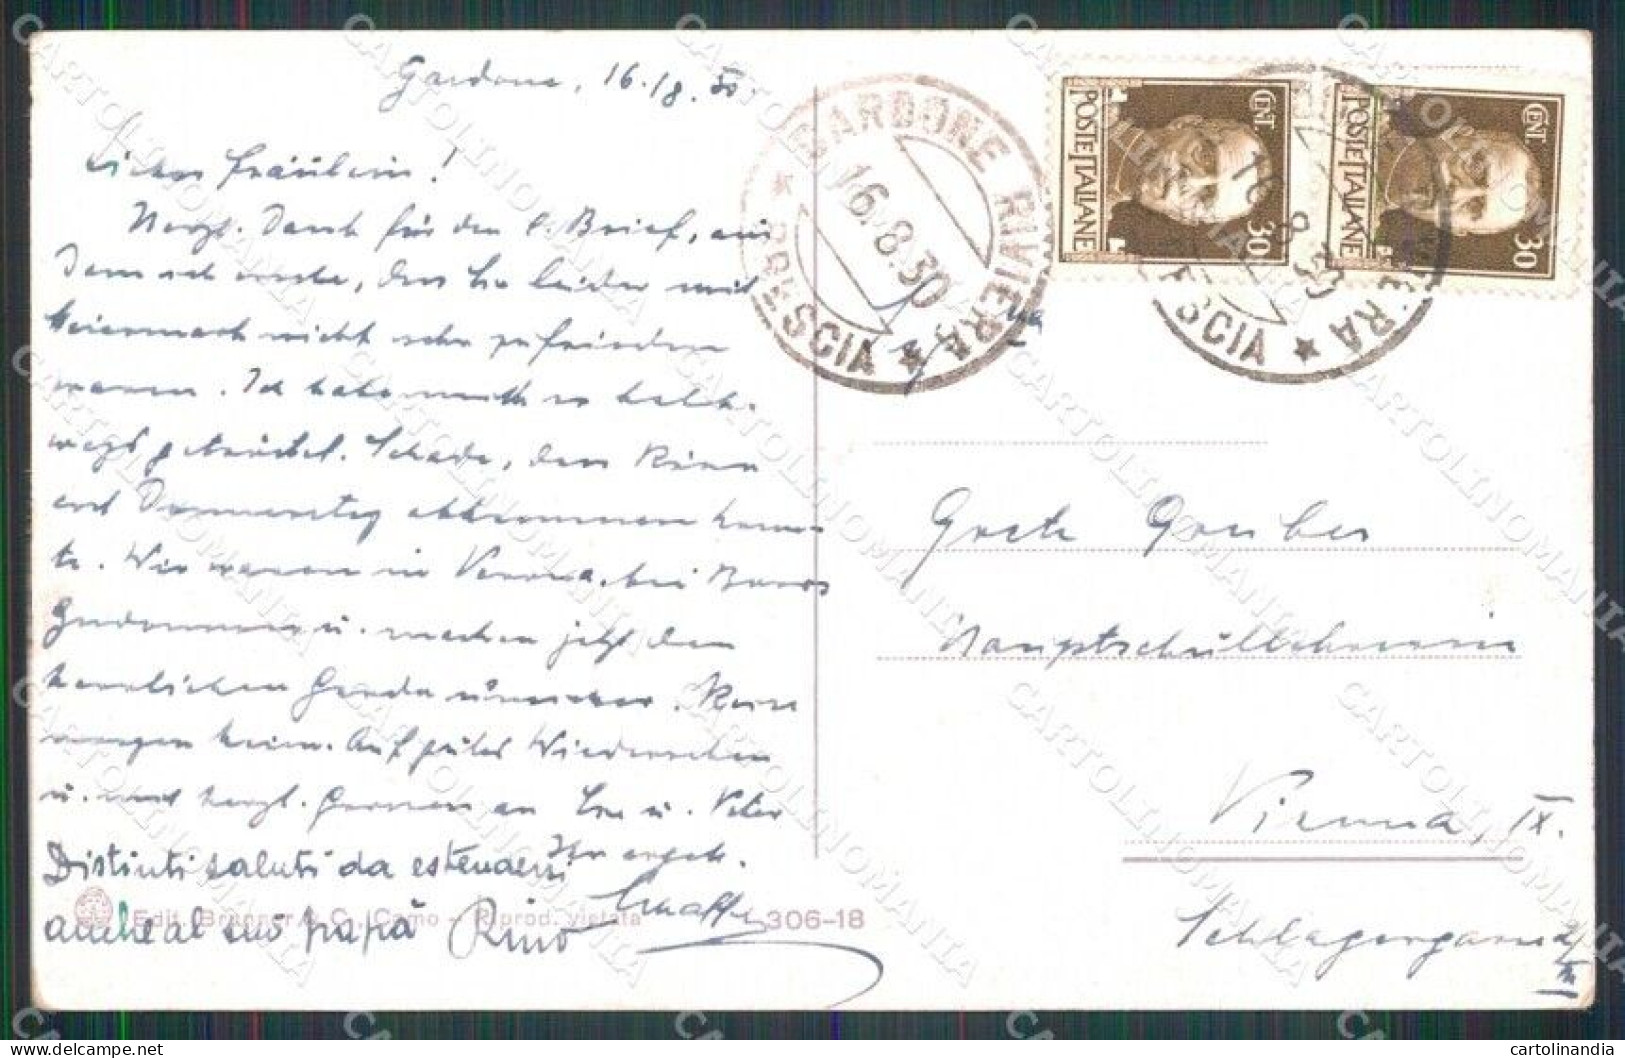 Gardone, 16./8. 30.
Liebes Fräulein!
Herzl. Dank für den l. Brief, aus
dem ich ersehe, das Sie leider mit
Steiermark nicht sehr zufrieden
waren. Ich habe mich so halb-
wegs getröstet. Schade, dass
erst Donnerstag abkommen konn-
te. Wir waren in Verona, bei
u. machen jetzt den
herrlichen Garda
morgen heim. Auf gutes Wiedersehen
u. und herzl. an Sie u. Vater
Ihr ergeb.
Distinti saluti da estendersi
anche al suo papà Rino
Edit. Brunner & C., Como - Riprod. vietata
306-18
GARDONE RIVIERA
BRESCIA
16.8.30
POSTE ITALIANE
CENT.
30
POSTE ITALIANE
CENT.
30
Grete Gruber
Hauptschullehrerin
Vienna, IX.
Schlagergasse
CARTOLINOMANIA
cartolinandia